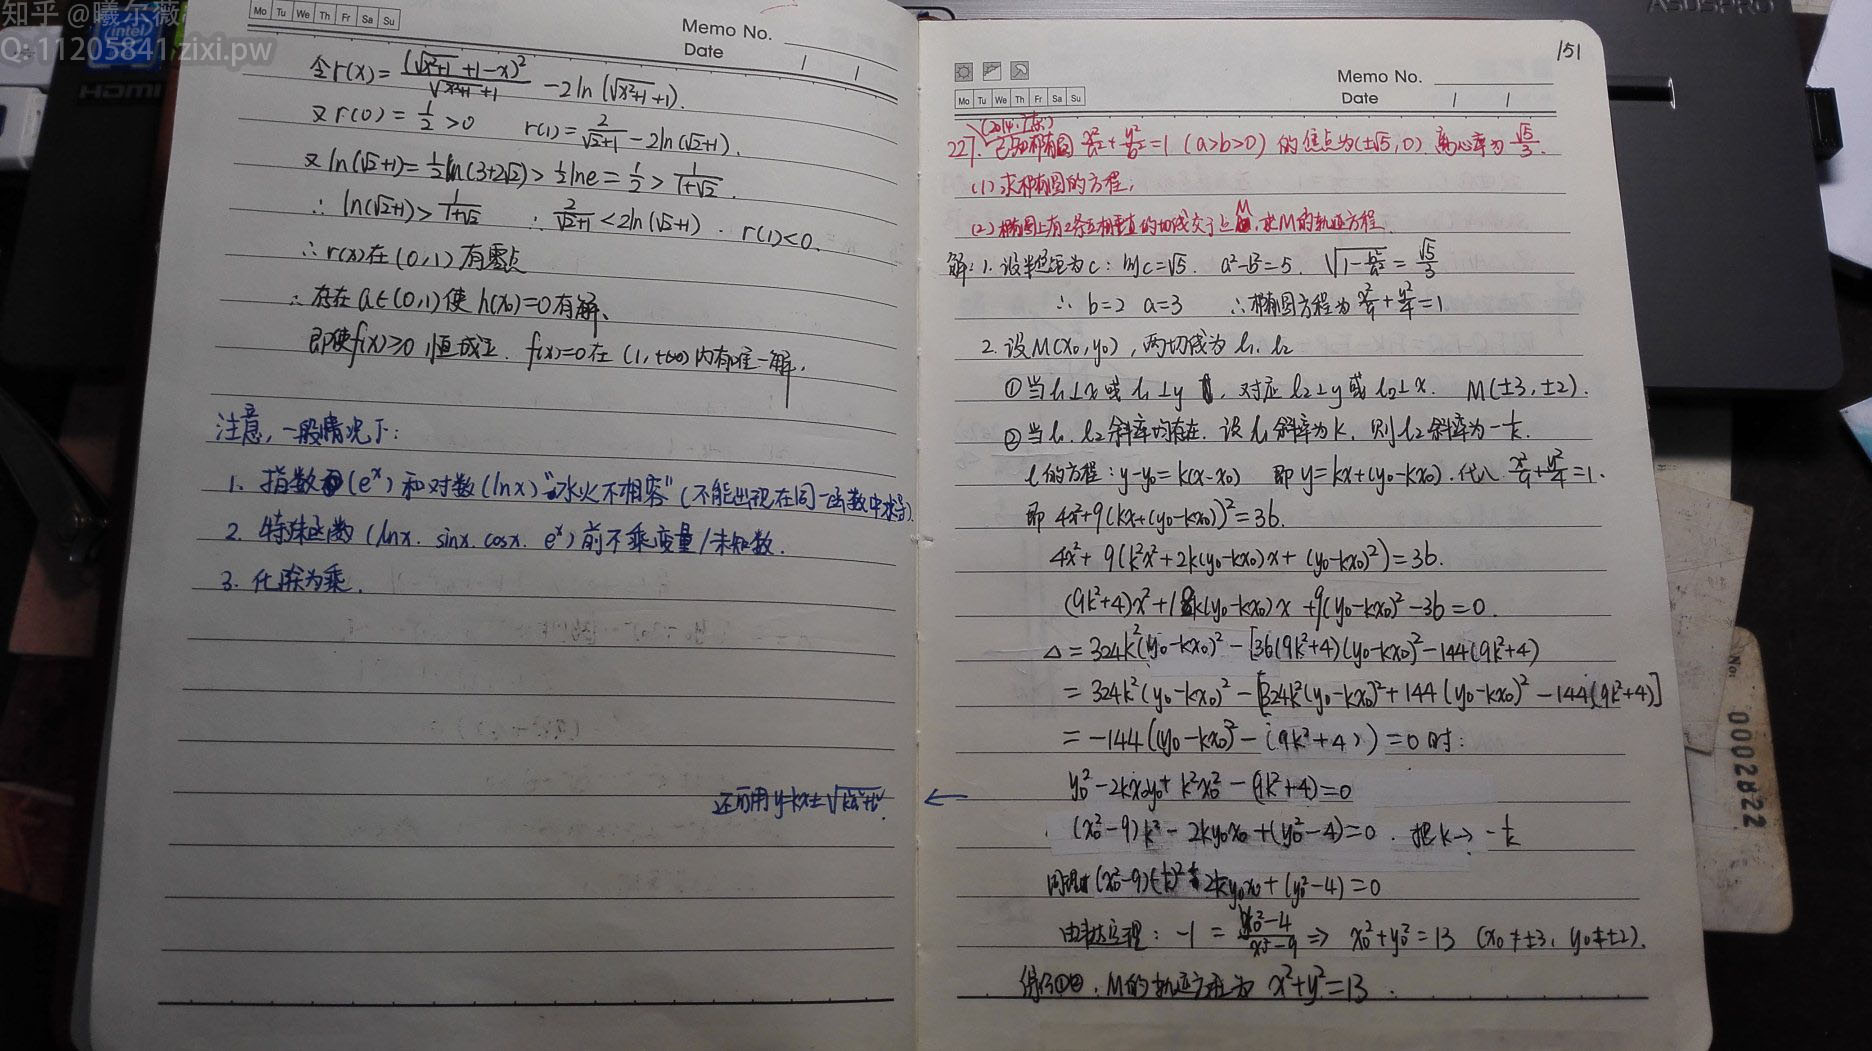 知乎 @曦尔薇
Q:11205841.zixi.pw
intel
HDMI
Mo Tu We Th Fr Sa Su
Memo No.
Date / /
令r(x)=(√(x²+1)+1-x)²/(√(x²+1)+1) -2ln(√(x²+1)+1).
又r(0)=1/2>0 r(1)=2/(√2+1)-2ln(√2+1).
又ln(√2+1)=1/2ln(3+2√2)>1/2lne=1/2>1/(1+√2).
∴ ln(√2+1)>1/(1+√2) ∴ 2/(√2+1)<2ln(√2+1). r(1)<0.
∴r(x)在(0,1)有零点
∴存在a∈(0,1)使h(x₀)=0有解、
即使f(x)≥0恒成立. f(x)=0在(1,+∞)内有唯一解.
注意,一般情况下:
1. 指数(eˣ)和对数(lnx)"水火不相容"(不能出现在同一函数中求导).
2. 特殊函数(lnx. sinx. cosx. eˣ)前不乘变量/未知数.
3. 化除为乘.
还可用y=kx±√(k²a²+b²).
←
ASUSPRO
151
Memo No.
Mo Tu We Th Fr Sa Su
Date / /
(2014.广东)
227. 已知椭圆x²/a²+y²/b²=1 (a>b>0) 的焦点为(±√5,0). 离心率为√5/3.
(1)求椭圆的方程;
(2)椭圆上有2条互相垂直的切线交于点M,求M的轨迹方程.
解:1. 设半焦距为c: 则c=√5. a²-b²=5. √(1-b²/a²)=√5/3
∴ b=2 a=3 ∴椭圆方程为x²/9+y²/4=1
2. 设M(x₀,y₀),两切线为l₁. l₂
①当l₁⊥x或l₁⊥y,对应l₂⊥y或l₂⊥x. M(±3,±2).
②当l₁. l₂斜率均存在. 设l₁斜率为k, 则l₂斜率为-1/k.
l的方程:y-y₀=k(x-x₀) 即y=kx+(y₀-kx₀).代入x²/9+y²/4=1.
即4x²+9(kx+(y₀-kx₀))²=36.
4x²+9(k²x²+2k(y₀-kx₀)x+(y₀-kx₀)²)=36.
(9k²+4)x²+18k(y₀-kx₀)x+9(y₀-kx₀)²-36=0.
△=324k²(y₀-kx₀)²-[36(9k²+4)(y₀-kx₀)²-144(9k²+4)
=324k²(y₀-kx₀)²-[324k²(y₀-kx₀)²+144(y₀-kx₀)²-144(9k²+4)]
=-144((y₀-kx₀)²-(9k²+4))=0时:
y₀²-2kx₀y₀+k²x₀²-(9k²+4)=0
(x₀²-9)k²-2ky₀x₀+(y₀²-4)=0. 把k→-1/k
同理 (x₀²-9)(-1/k)²+2/k y₀x₀+(y₀²-4)=0
方程: -1=(y₀²-4)/(x₀²-9)⇒ x₀²+y₀²=13 (x₀≠±3, y₀≠±2).
综合①②,M的轨迹方程为x²+y²=13.
No. 0002822